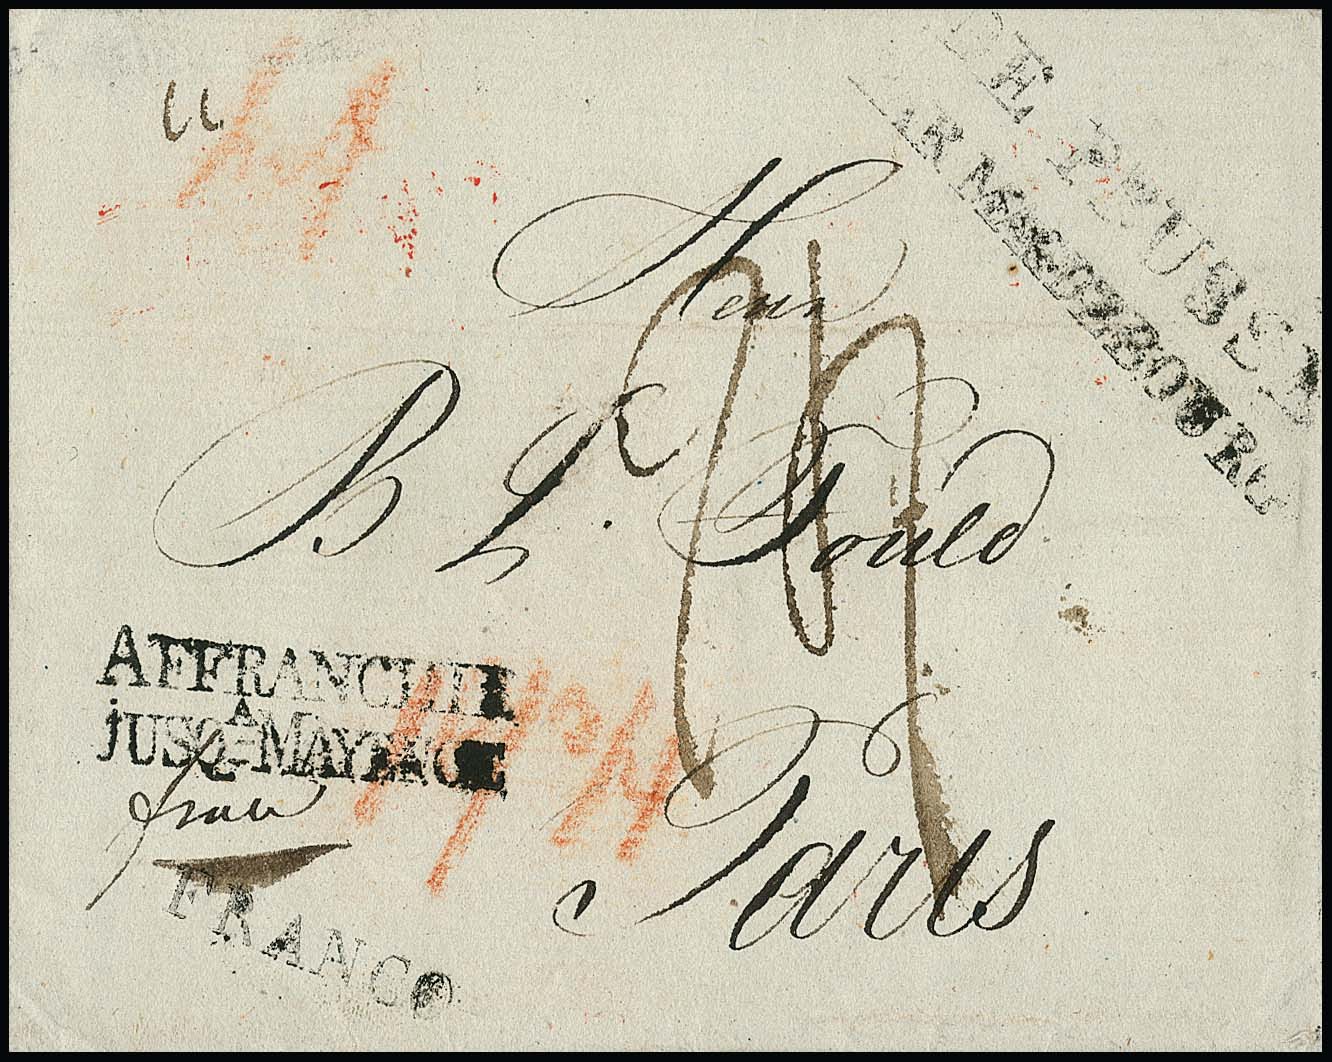 DE PRUSSE
PAR MAGDEBOURG
Herrn
B L. Fould
Paris
AFFRANCHI
A
JUSQ-MAYENCE
franco
FRANCO